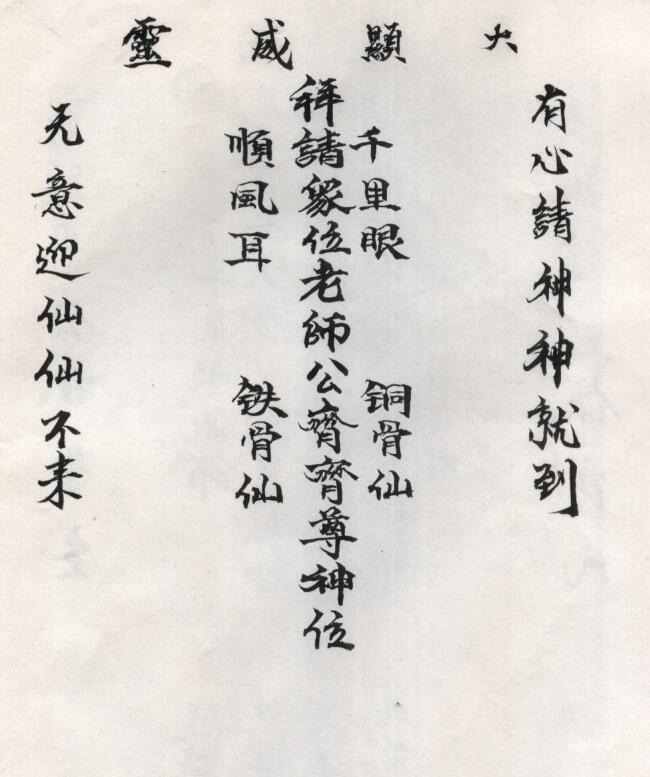 大顯威靈
有心請神神就到
千里眼
銅骨仙
拜請眾位老師公齊齊尊神位
順風耳
鉄骨仙
无意迎仙仙不来